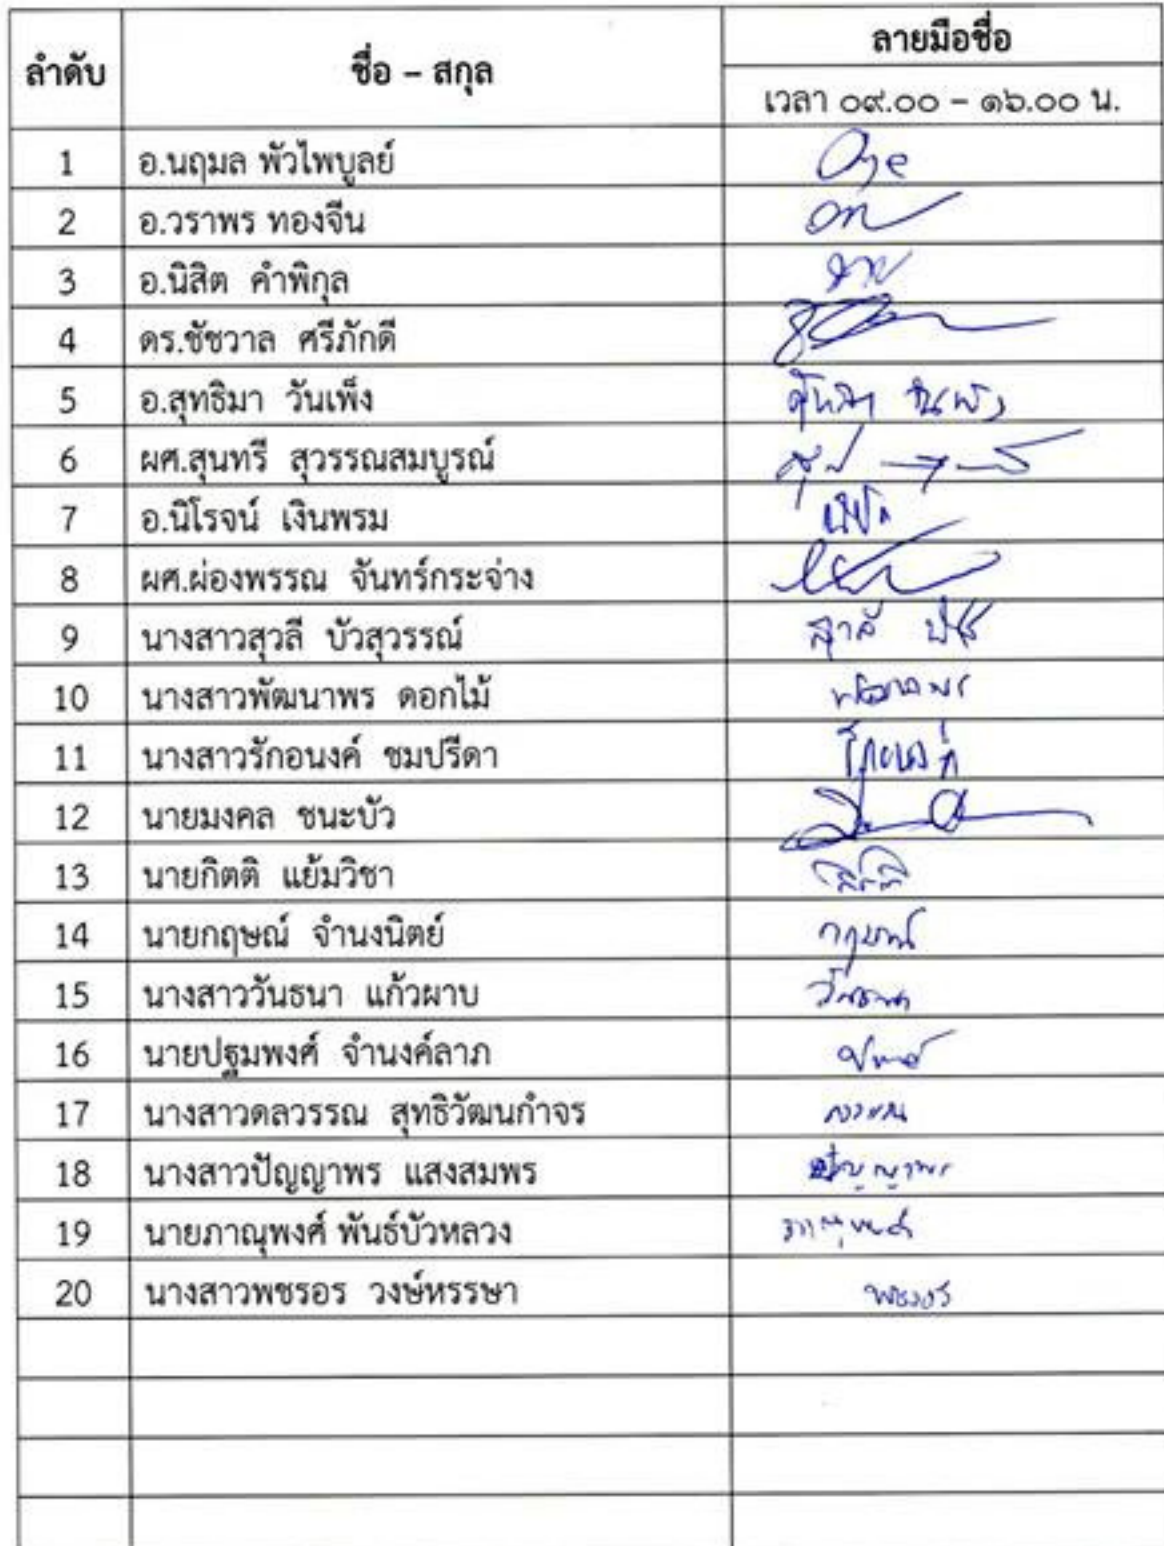 ลำดับ ชื่อ – สกุล ลายมือชื่อ
เวลา ๐๙.๐๐ – ๑๖.๐๐ น.
1 อ.นฤมล พัวไพบูลย์
2 อ.วราพร ทองจีน
3 อ.นิสิต คำพิกุล
4 ดร.ชัชวาล ศรีภักดี
5 อ.สุทธิมา วันเพ็ง
6 ผศ.สุนทรี สุวรรณสมบูรณ์
7 อ.นิโรจน์ เงินพรม
8 ผศ.ผ่องพรรณ จันทร์กระจ่าง
9 นางสาวสุวลี บัวสุวรรณ์
10 นางสาวพัฒนาพร ดอกไม้ พัฒนาพร
11 นางสาวรักอนงค์ ชมปรีดา
12 นายมงคล ชนะบัว
13 นายกิตติ แย้มวิชา
14 นายกฤษณ์ จำนงนิตย์
15 นางสาววันธนา แก้วผาบ วันธนา
16 นายปฐมพงศ์ จำนงค์ลาภ
17 นางสาวดลวรรณ สุทธิวัฒนกำจร
18 นางสาวปัญญาพร แสงสมพร ปัญญาพร
19 นายภาณุพงศ์ พันธ์บัวหลวง ภาณุพงศ์
20 นางสาวพชรอร วงษ์หรรษา พชรอร